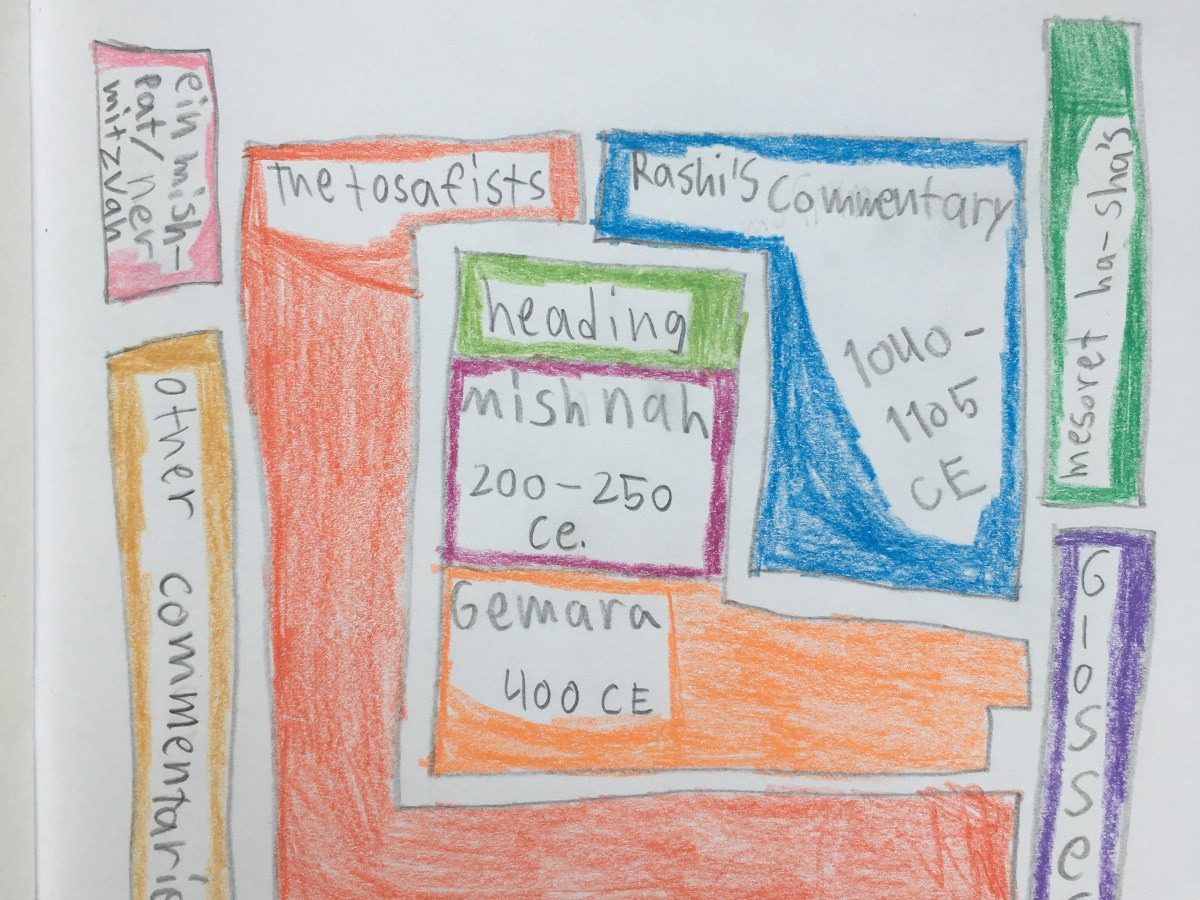 ein mish-
pat/ner
mitzvah
The tosafists
Rashi's Commentary
1040-
1105
CE
mesoret ha-sha's
heading
mishnah
200-250
Ce.
Gemara
400 CE
other commentarie
Glosse